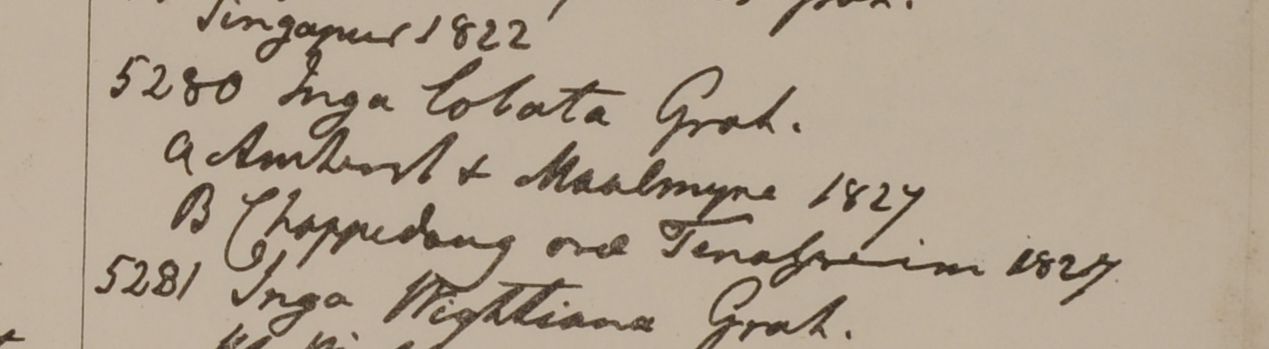 Singapur 1822
5280 Inga lobata Grah.
a Amherst & Maalmyne 1827
B Chappedong orae Tenasserim 1827
5281 Inga Wightiana Grah.